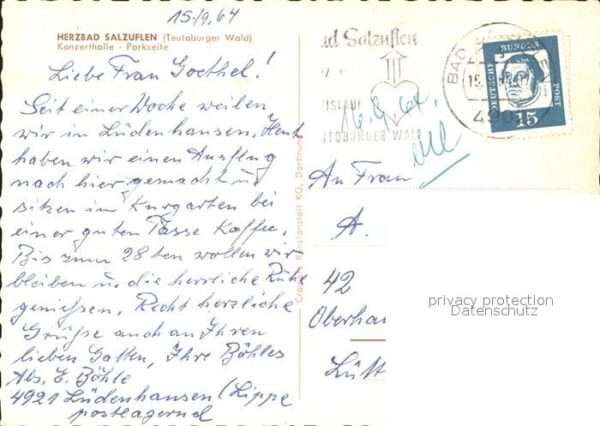 15./9.64
HERZBAD SALZUFLEN (Teutoburger Wald)
Konzerthalle - Parkseite
Liebe Frau Goethel!
Seit einer Woche weilen
wir in Lüdenhausen. Heute
haben wir einen Ausflug
nach hier gemacht und
sitzen im Kurgarten bei
einer guten Tasse Kaffee.
Bis zum 28ten wollen wir
bleiben u. die herrliche Ruhe
genießen. Recht herzliche
Grüße auch an Ihren
lieben Gatten, Ihre Böhles
Abs. E. Böhle
4921 Lüdenhausen (Lippe
postlagernd
Kunstanstalt KG, Dortmund
ad Salzuflen
TOBURGER WALD
16.9.64.
BAD
15.
490
DEUTSCHE
BUNDES
POST
15
An Frau
A.
42
Oberhau
Lütt
privacy protection
Datenschutz